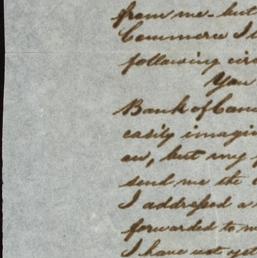 from me. but
Commerce I
following cir
You
Bank of Can
easily imagin
an, but my
send me the
I addressed a
forwarded to m
I have not yet